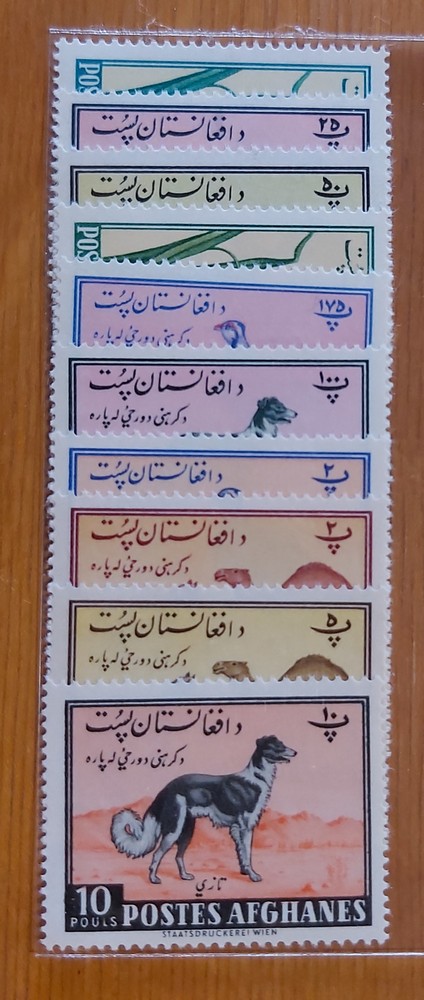 POS
د افغانستان پُست ۲۵ پ
د افغانستان پُست ۵۰ پ
POS
د افغانستان پُست ۱۷۵ پ
د کرهنې د ورځې له پاره
د افغانستان پُست ۱۰۰ پ
د کرهنې د ورځې له پاره
د افغانستان پُست ۲ پ
د افغانستان پُست ۲ پ
د کرهنې د ورځې له پاره
د افغانستان پُست ۵ پ
د کرهنې د ورځې له پاره
د افغانستان پُست ۱۰ پ
د کرهنې د ورځې له پاره
تازي
10
POULS POSTES AFGHANES
STAATSDRUCKEREI WIEN